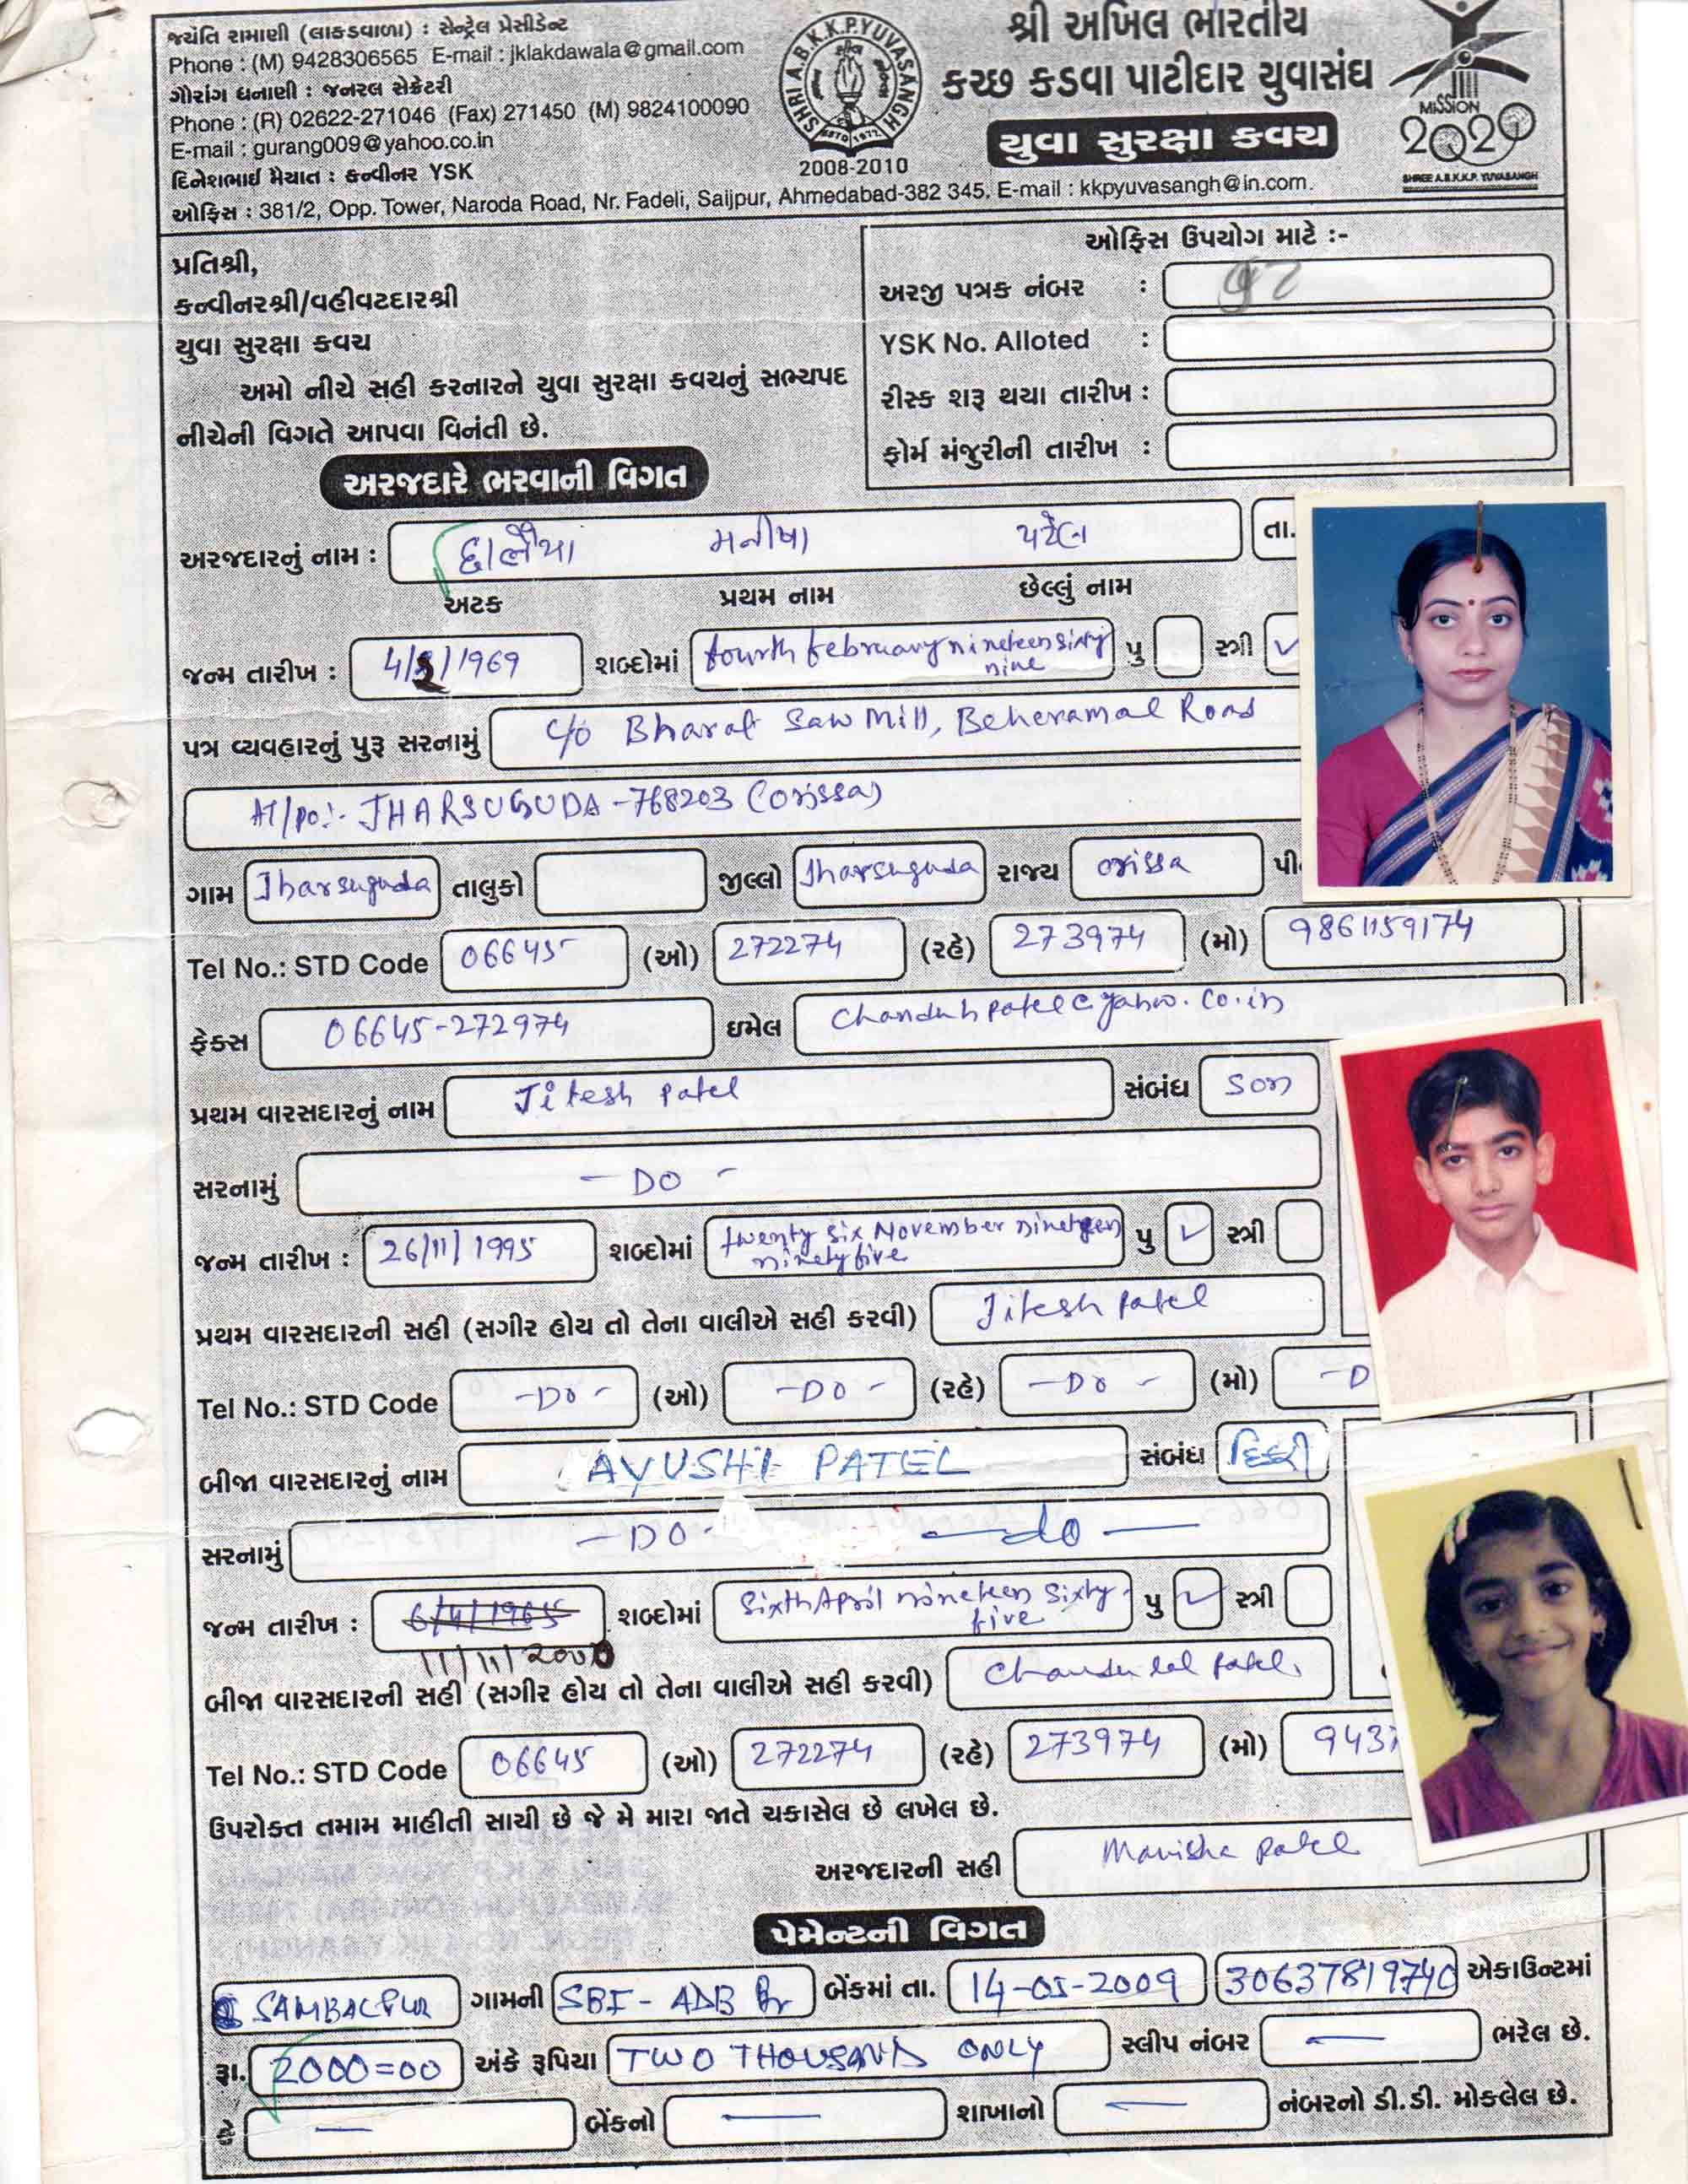 જયંતિ રામાણી (લાકડાવાળા) : સેન્ટ્રેલ પ્રેસીડેન્ટ
Phone : (M) 9428306565 E-mail : jklakdawala@gmail.com
ગૌરાંગ ધનાણી : જનરલ સેક્રેટરી
Phone : (R) 02622-271046 (Fax) 271450 (M) 9824100090
E-mail : gurang009@yahoo.co.in
દિનેશભાઈ મૈયાત : કન્વીનર YSK
SHRI A.B.K.K.P. YUVASANGH
ESTD 1972
2008-2010
શ્રી અખિલ ભારતીય
કચ્છ કડવા પાટીદાર યુવાસંઘ
યુવા સુરક્ષા કવચ
MISSION
2020
SHREE A.B.K.K.P. YUVASANGH
ઓફિસ : 381/2, Opp. Tower, Naroda Road, Nr. Fadeli, Saijpur, Ahmedabad-382 345. E-mail : kkpyuvasangh@in.com.
પ્રતિશ્રી,
કન્વીનરશ્રી/વહીવટદારશ્રી
યુવા સુરક્ષા કવચ
અમો નીચે સહી કરનારને યુવા સુરક્ષા કવચનું સભ્યપદ
નીચેની વિગતે આપવા વિનંતી છે.
ઓફિસ ઉપયોગ માટે :-
અરજી પત્રક નંબર :
YSK No. Alloted :
રીસ્ક શરૂ થયા તારીખ :
ફોર્મ મંજુરીની તારીખ :
અરજદારે ભરવાની વિગત
અરજદારનું નામ : મનીષા પટેલ તા.
અટક પ્રથમ નામ છેલ્લું નામ
જન્મ તારીખ : 4/2/1969 શબ્દોમાં fourth february nineteen sixty nine પુ સ્ત્રી ✓
પત્ર વ્યવહારનું પુરૂ સરનામું C/o Bharat Saw Mill, Beheramal Road
At/po:- JHARSUGUDA-768203 (Orissa)
ગામ Jharsuguda તાલુકો જીલ્લો Jharsuguda રાજ્ય orissa પી.
Tel No.: STD Code 06645 (ઓ) 272274 (રહે) 273974 (મો) 9861159174
ફેક્સ 06645-272974 ઇમેલ Chanduhpatel@yahoo.co.in
પ્રથમ વારસદારનું નામ Jitesh Patel સંબંધ Son
સરનામું - DO -
જન્મ તારીખ : 26/11/1995 શબ્દોમાં twenty six November nineteen ninety five પુ ✓ સ્ત્રી
પ્રથમ વારસદારની સહી (સગીર હોય તો તેના વાલીએ સહી કરવી) Jitesh Patel
Tel No.: STD Code -Do- (ઓ) -Do- (રહે) -Do- (મો) -D
બીજા વારસદારનું નામ AYUSHI PATEL સંબંધ દિકરી
સરનામું - DO - - do -
જન્મ તારીખ : 6/4/1965 શબ્દોમાં Sixth April nineteen Sixty five પુ ✓ સ્ત્રી
11/11/2000
બીજા વારસદારની સહી (સગીર હોય તો તેના વાલીએ સહી કરવી) Chandulal Patel
Tel No.: STD Code 06645 (ઓ) 272274 (રહે) 273974 (મો) 943
ઉપરોક્ત તમામ માહીતી સાચી છે જે મે મારા જાતે ચકાસેલ છે લખેલ છે.
અરજદારની સહી Manisha Patel
પેમેન્ટની વિગત
SAMBALPUR ગામની SBI - ADB Br બેંકમાં તા. 14-05-2009 30637819740 એકાઉન્ટમાં
રૂા. 2000=00 અંકે રૂપિયા TWO THOUSAND ONLY સ્લીપ નંબર — ભરેલ છે.
કે — બેંકનો — શાખાનો — નંબરનો ડી.ડી. મોકલેલ છે.